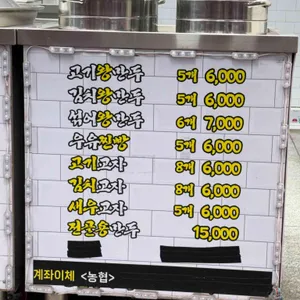 고기왕만두 5개 6,000
김치왕만두 5개 6,000
섞어왕만두 6개 7,000
수수찐빵 5개 6,000
고기교자 8개 6,000
김치교자 8개 6,000
새우교자 5개 6,000
전골용만두 15,000
계좌이체 <농협>